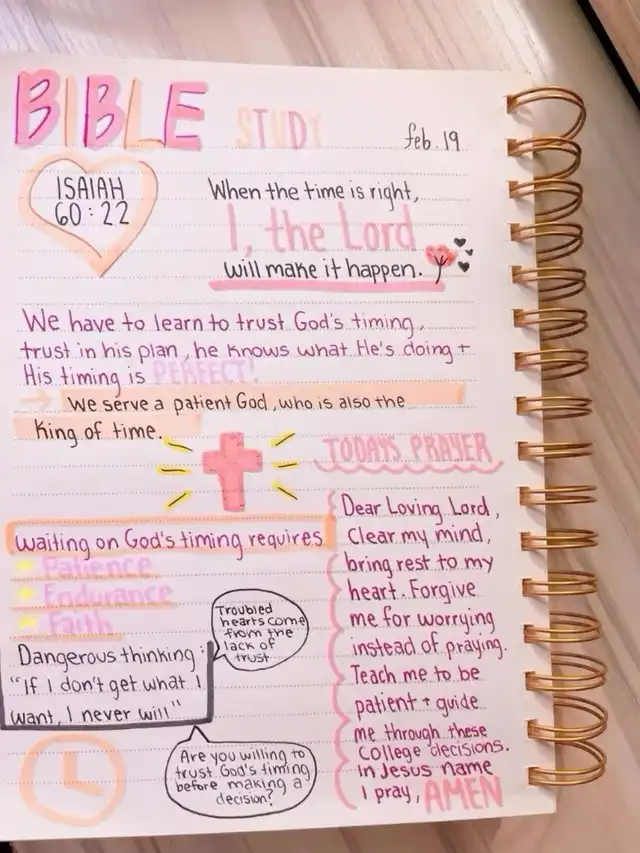 BIBLE STUDY
feb. 19
ISAIAH
60:22
When the time is right,
I, the Lord
will make it happen.
We have to learn to trust God's timing,
trust in his plan, he knows what He's doing +
His timing is PERFECT!
→ We serve a patient God, who is also the
King of time.
waiting on God's timing requires
Patience
Endurance
Faith
Troubled
hearts come
from the
lack of
trust
Dangerous thinking:
"If I don't get what I
want, I never will"
Are you willing to
trust God's timing
before making a
decision?
TODAYS PRAYER
Dear Loving Lord,
Clear my mind,
bring rest to my
heart. Forgive
me for worrying
instead of praying.
Teach me to be
patient + guide
me through these
College decisions.
In Jesus name
I pray, AMEN